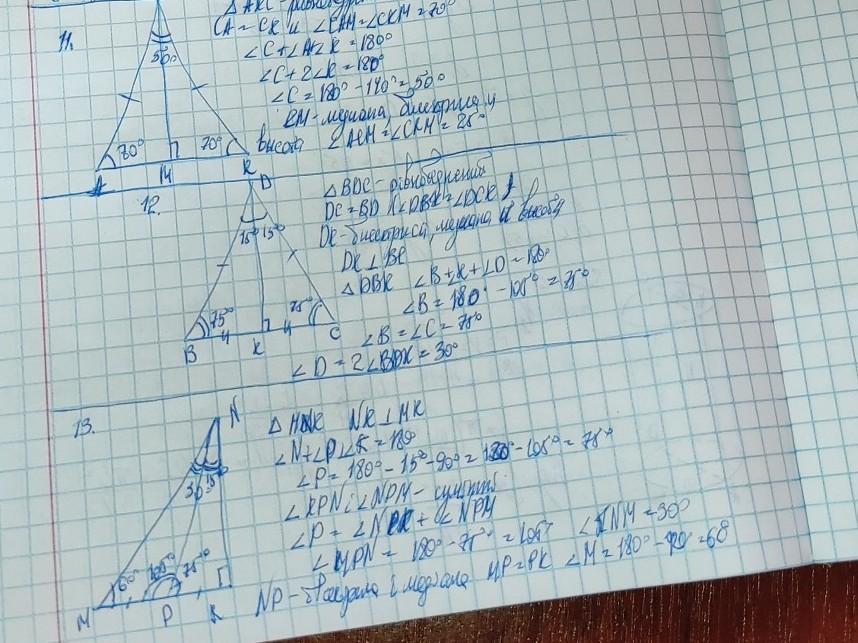 11.
CA = CK и ∠CAM = ∠CKM = 70°
∠C + ∠A + ∠K = 180°
∠C + 2∠K = 180°
∠C = 180° - 140° = 50°
KM - медиана, биектриса и
высота ∠ACM = ∠CKM = 25°
50°
70° 70°
A M K
12.
△BDC - рівнобедрений
DC = BD ∠DBK = ∠DCK
DK - биектриса, медиана и высота
DK ⊥ BC
△DBK ∠B + ∠K + ∠D = 180°
∠B = 180° - 105° = 75°
∠B = ∠C = 75°
∠D = 2∠BDK = 30°
D
15° 15°
75° 75°
B K C
13.
NK ⊥ MK
∠N + ∠P ∠K = 180°
∠P = 180° - 15° - 90° = 180° - 105° = 75°
∠KPN і ∠NPM - суміжні
∠MPN = 180° - 75° = 105° ∠KNM = 30°
NP - і медиана MP = PK ∠M = 180° - 90° = 60
N
30° 15°
60° 105° 75°
M P K